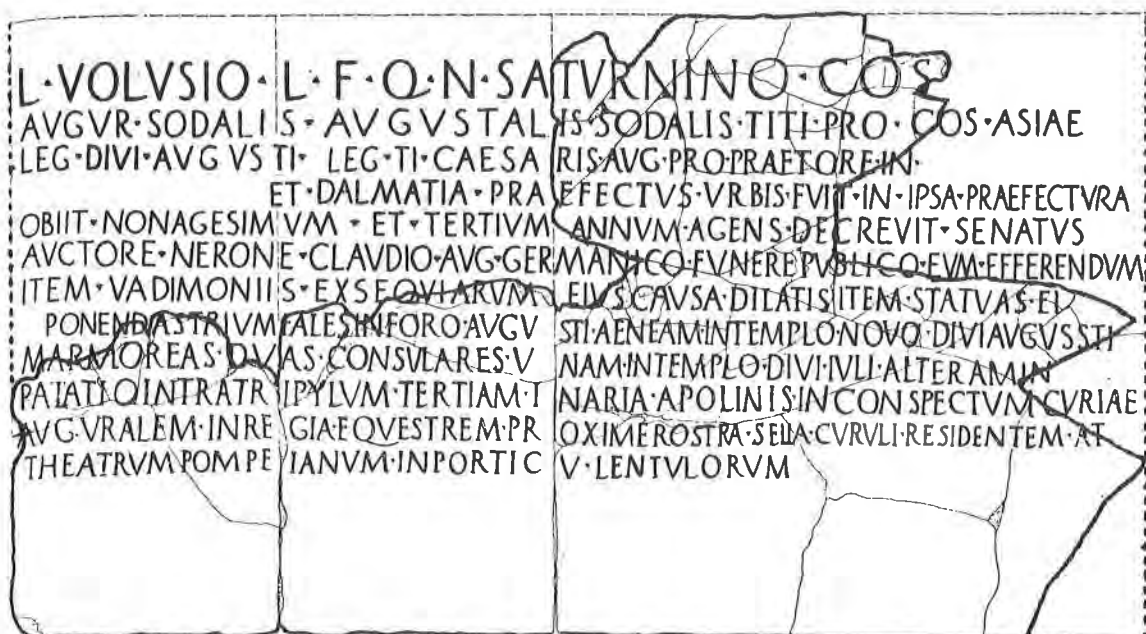 L·VOLVSIO·L·F·Q·N·SATVRNINO·COS
AVGVR·SODALIS·AVGVSTALIS·SODALIS·TITI·PRO·COS·ASIAE
LEG·DIVI·AVGVSTI·LEG·TI·CAESARIS·AVG·PRO·PRAETORE·IN·
ET·DALMATIA·PRAEFECTVS·VRBIS·FVIT·IN·IPSA·PRAEFECTVRA
OBIIT·NONAGESIMVM·ET·TERTIVM ANNVM·AGENS·DECREVIT·SENATVS
AVCTORE·NERONE·CLAVDIO·AVG·GERMANICO·FVNERE PVBLICO·EVM·EFFERENDVM
ITEM·VADIMONIIS·EXSEQVIARVM EIVS CAVSA·DILATIS ITEM·STATVAS·EI
PONENDAS TRIVMFALES IN FORO·AVGVSTI·AENEAM IN TEMPLO·NOVO·DIVI AVGVSSTI
MARMOREAS·DVAS·CONSVLARES·VNAM·IN TEMPLO·DIVI·IVLI·ALTERAM IN
PALATIO INTRA TRIPYLVM·TERTIAM·INARIA·APOLINIS·IN CONSPECTVM CVRIAE
AVGVRALEM·IN REGIA EQVESTREM·PROXIME ROSTRA·SELLA·CVRVLI·RESIDENTEM·AT
THEATRVM POMPEIANVM·IN PORTICV·LENTVLORVM